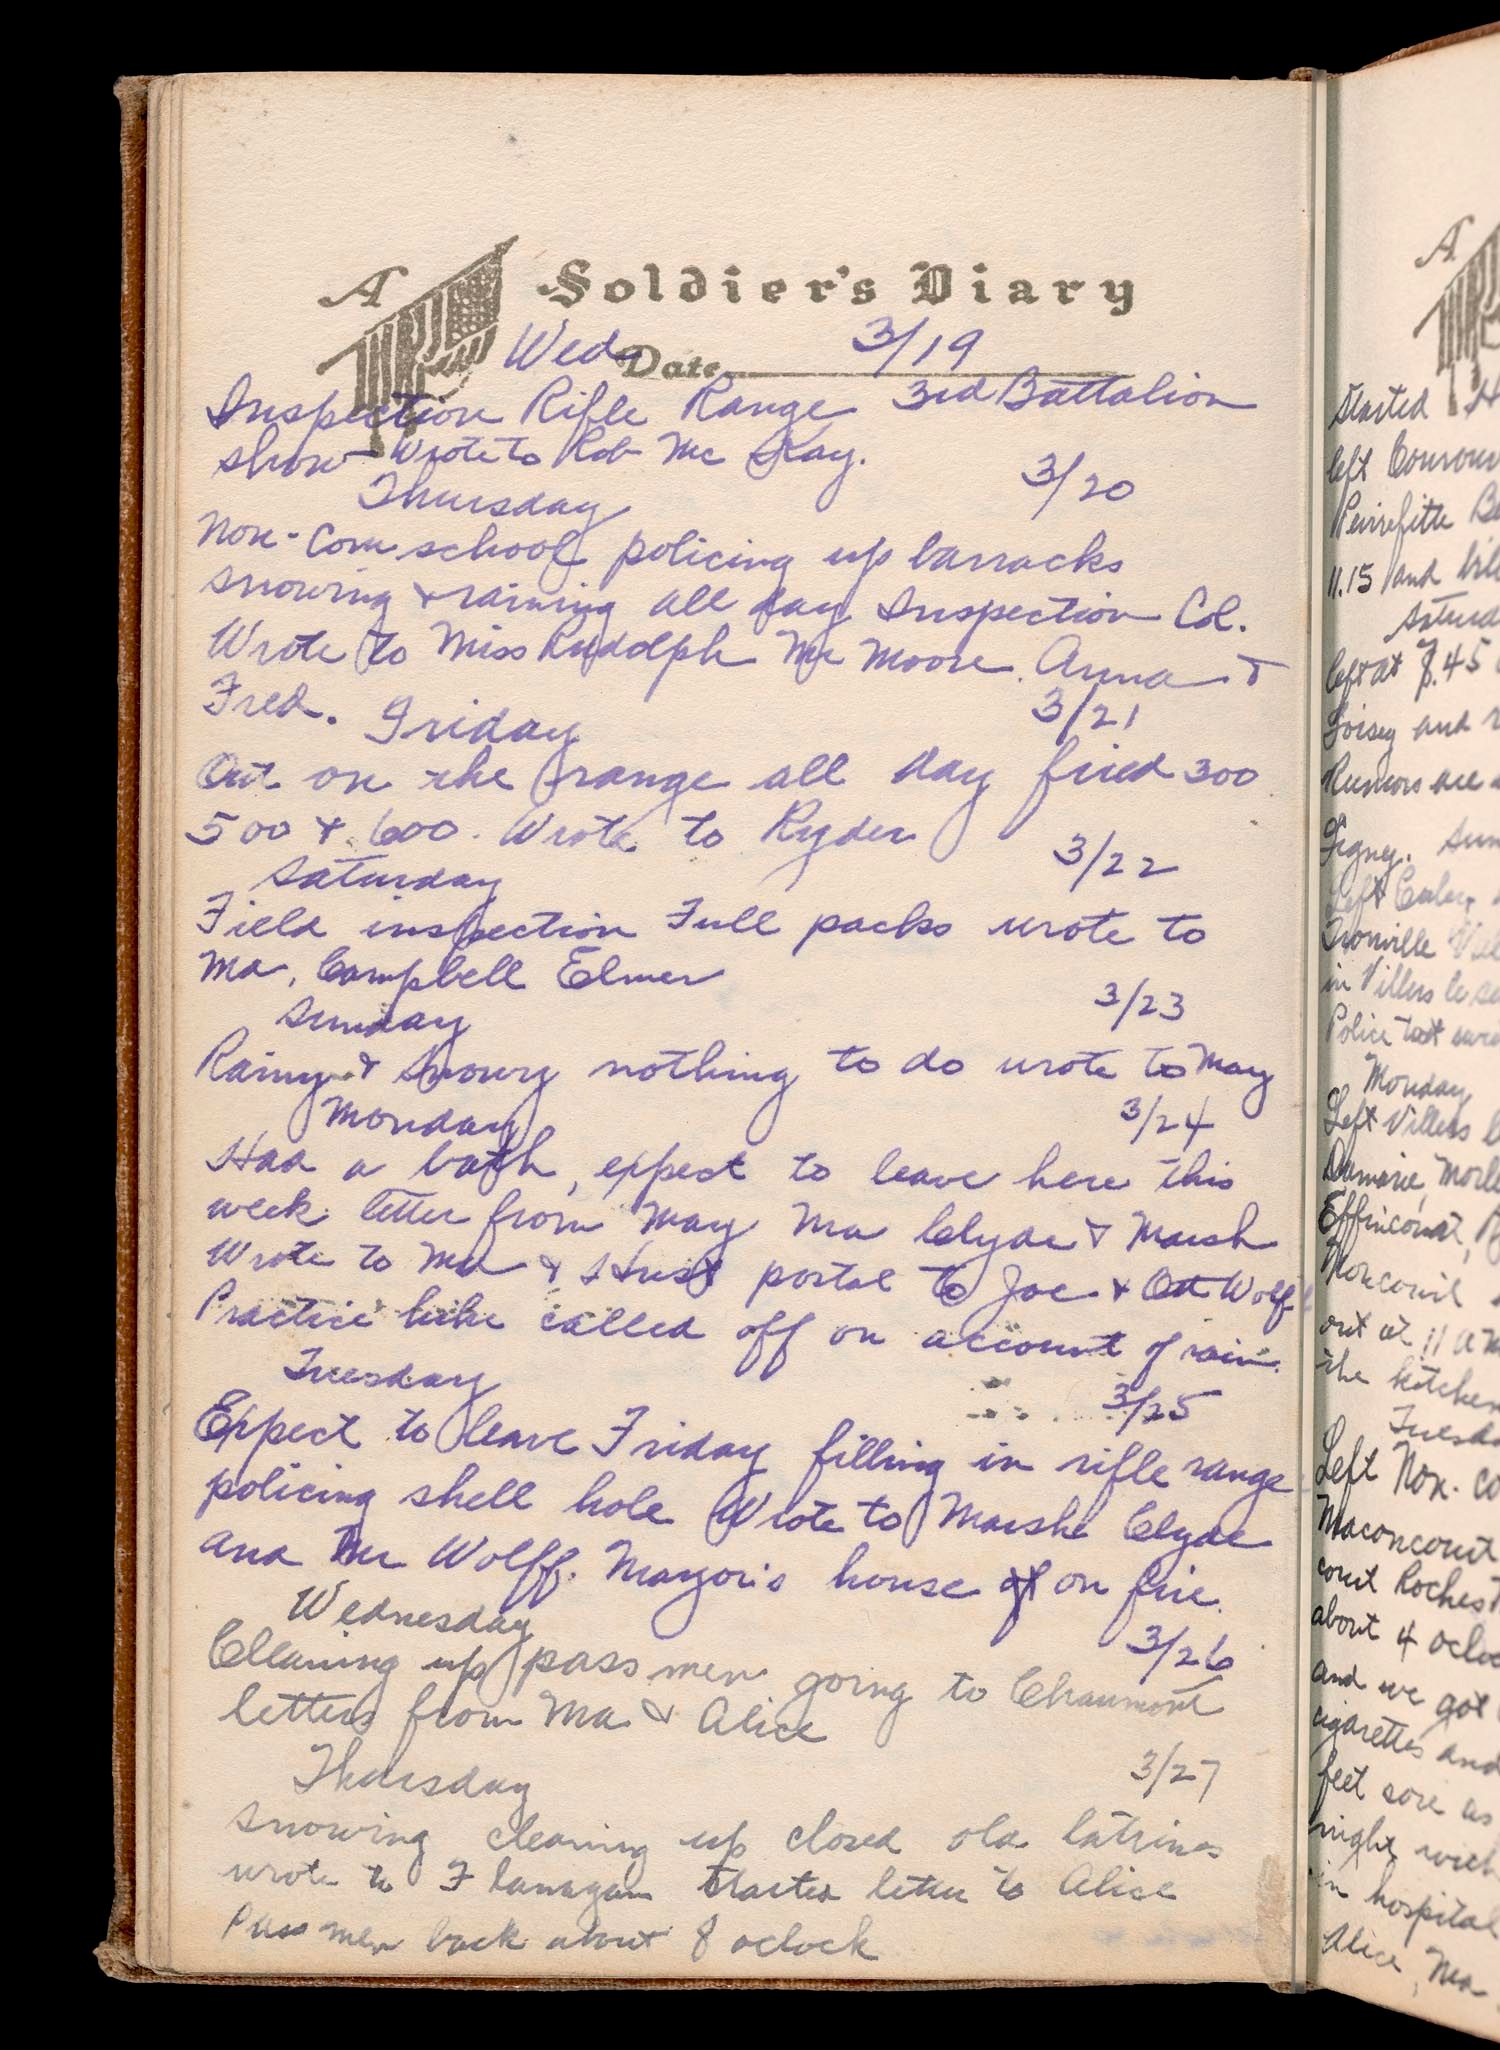 A Soldier's Diary
Wed Date 3/19
Inspection Rifle Range 3rd Battalion
show Wrote to Rob Mc Kay.
Thursday 3/20
Non-Com school policing up barracks
snowing & raining all day Inspection Col.
Wrote to Miss Rudolph Mr Moore Anna &
Fred.
Friday 3/21
Out on the range all day fired 300
500 & 600. Wrote to Ryder
Saturday 3/22
Field inspection Full packs wrote to
Ma, Campbell Elmer
Sunday 3/23
Rainy & Snowy nothing to do wrote to May
Monday 3/24
Had a bath, expect to leave here this
week letter from May Ma Clyde & Marsh
Wrote to Ma & postal to Joe & Wolff
Practice hike called off on account of rain.
Tuesday 3/25
Expect to leave Friday filling in rifle range
policing shell hole Wrote to Marshe Clyde
and Mr Wolff. Mayor's house on fire.
Wednesday 3/26
Cleaning up pass men going to Chaumont
letters from Ma & Alice
Thursday 3/27
Snowing cleaning up closed old latrines
wrote to Flanagan Started letter to Alice
Pass men back about 8 oclock
A
Started
left
Peirrefitte
11.15 and
left at 8.45
Loisey and
Rumors are
Ligney.
Left
Tronville
in Villers le
Police
Monday
Left Villers
Morl
Effincourt,
out at 11 a m
the kitchen
Left Non-co
Maconcourt
court Rochest
about 4 ocloc
and we got
cigarettes and
feet sore as
night with
in hospital
Alice, Ma